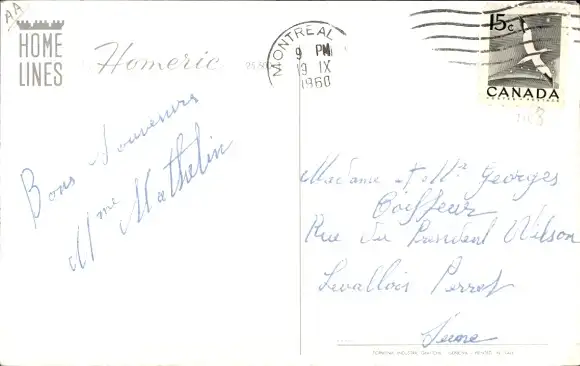 AA
HOME
LINES
Homeric
MONTREAL
9 PM
19 IX
1960
15c
CANADA
Bons Souvenirs
Mme Mathelin
Madame et Mr Georges
Coiffeur
Rue du President Wilson
Levallois Perret
Seine